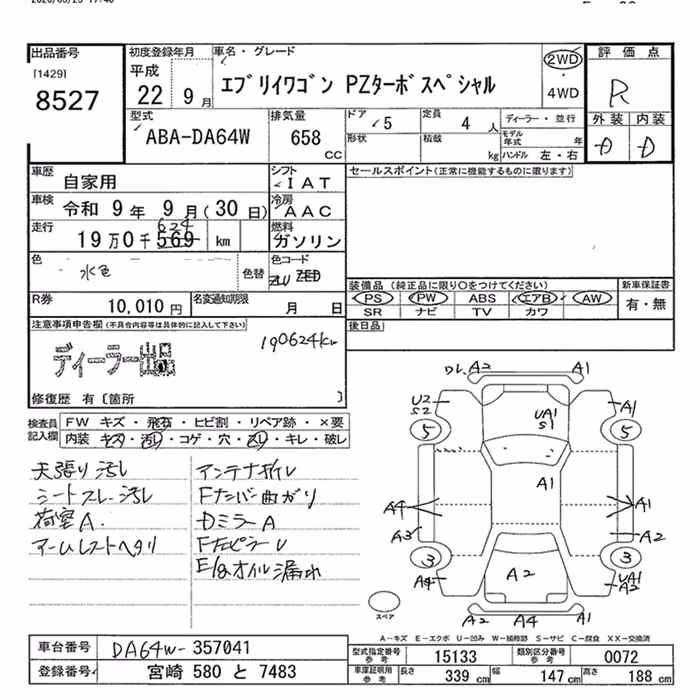 出品番号
[1429]
8527
初度登録年月
平成
22 9月
車名・グレード
エブリイワゴン PZターボスペシャル
2WD
・
4WD
評価点
R
外装 内装
D D
型式
ABA-DA64W
排気量
658
CC
ドア
5
定員
4人
ディーラー・並行
形状
積載
kg
モデル年式 年
ハンドル 左・右
車歴
自家用
シフト
IAT
セールスポイント(正常に機能するものに限ります)
車検
令和 9年 9月(30日)
冷房
AAC
走行
624
19万0千569 km
燃料
ガソリン
色
水色
色替
色コード
ZLU ZED
装備品(純正品に限り○をつけてください)
PS PW ABS エアB AW
SR ナビ TV カワ
新車保証書
有・無
R券
10,010円
名変通知期限
月 日
後日品
注意事項申告欄(不具合内容等は具体的に記入して下さい)
190624km
ディーラー出品
修復歴 有〔箇所 〕
検査員記入欄
FW キズ・飛石・ヒビ割・リペア跡・×要
内装 キズ・汚レ・コゲ・穴・スレ・キレ・破レ
天張り汚レ
シートスレ、汚レ
荷室A.
アームレストヘタリ
アンテナガイレ
Fナンバー曲がり
DミラーA
E/gオイル漏れ
DL A2 A1
U2
S2
UA1
S1
A1
5 5
A1
A4 A1
A3 A2
3 3
A4 A2 UA1
A2
A2 A4 A1
スペア
A－キズ E－エクボ U－凹み W－補修跡 S－サビ C－腐食 XX－交換済
車台番号
DA64W-357041
型式指定番号 参考
15133
類別区分番号 参考
0072
登録番号
宮崎 580 と 7483
車庫証明用 参考
長さ 339 cm 幅 147 cm 高さ 188 cm